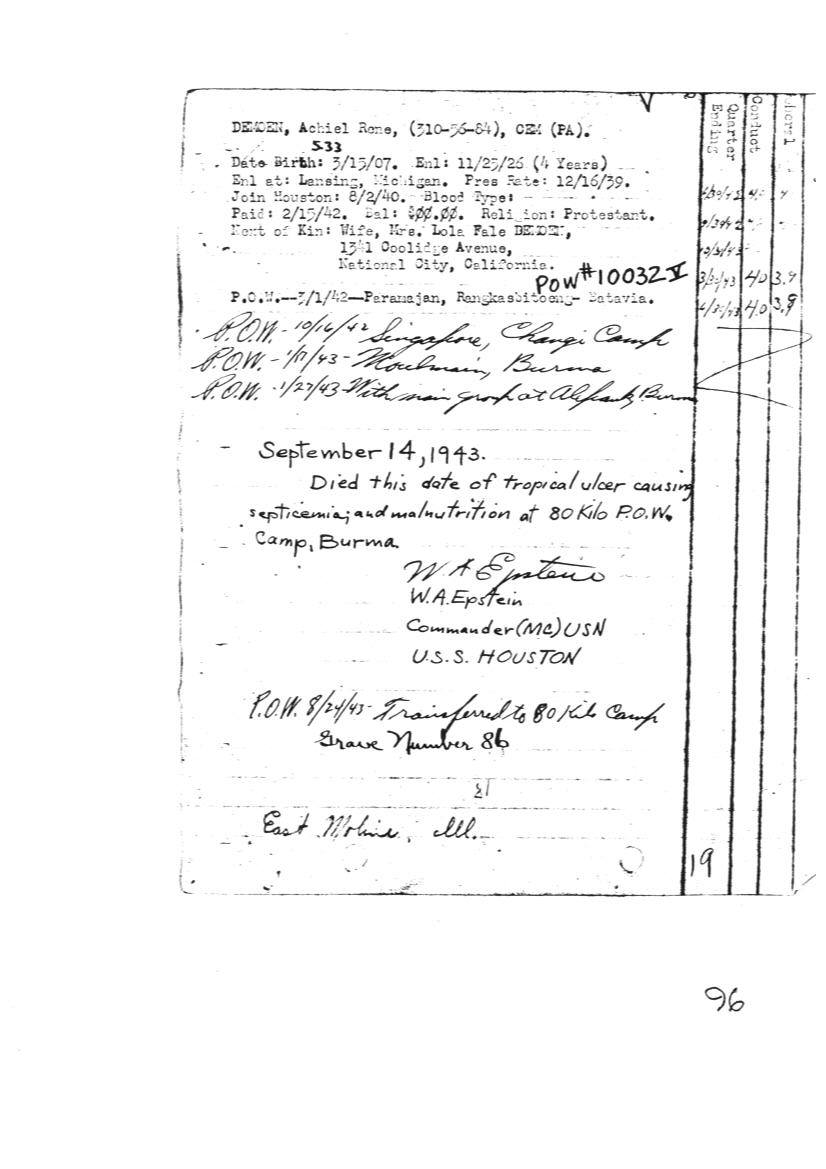 DEMOEN, Achiel Rone, (310-56-84), CEM (PA).
533
Date Birth: 3/15/07. Enl: 11/25/26 (4 Years)
Enl at: Lansing, Michigan. Pres Rate: 12/16/39.
Join Houston: 8/2/40. Blood Type:
Paid: 2/15/42. Bal: $00.00. Religion: Protestant.
Next of Kin: Wife, Mrs. Lola Fale DEMOEN,
1341 Coolidge Avenue,
National City, California.
POW#10032 V
P.O.W.--3/1/42—Paramajan, Rangkasbitoeng- Batavia.
P.O.W. - 10/16/42 Singapore, Changi Camp
P.O.W. - 1/17/43 - Moulmain, Burma
P.O.W. - 1/27/43 - With main group at Burma
- September 14, 1943.
Died this date of tropical ulcer causing
septicemia; and malnutrition at 80 Kilo P.O.W.
Camp, Burma.
W A Epstein
W.A. Epstein
Commander (MC) USN
U.S.S. HOUSTON
P.O.W. 8/24/43 - Transferred to 80 Kilo Camp
Grave Number 86
East Moline, Ill.
Quarter
Ending
Conduct
3/31/43 4.0 3.9
4.0 3.9
19
96